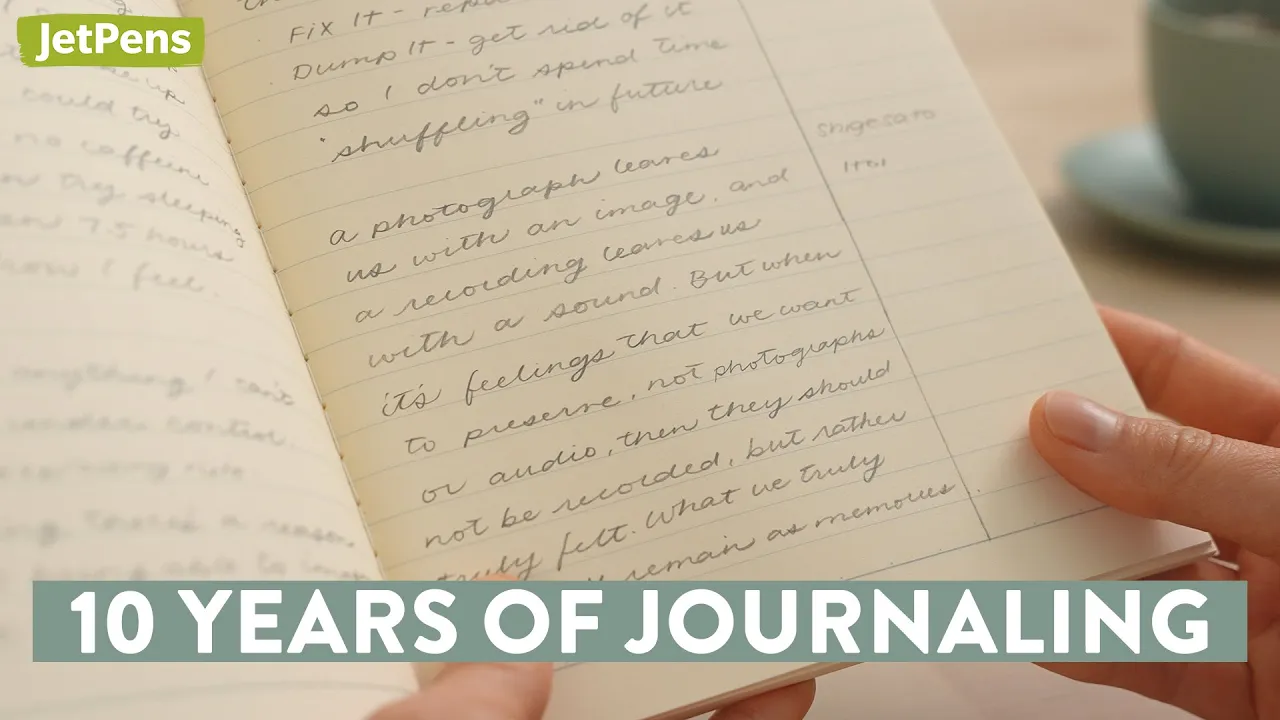 JetPens
Fix It - 
Dump It - get rid of it
so I don't spend time
"shuffling" in future
a photograph leaves
us with an image, and
a recording leaves us
with a sound. But when
it's feelings that we want
to preserve, not photographs
or audio, then they should
not be recorded, but rather
truly felt. What we truly
remain as memories
shigesato
Itoi
could try
no caffeine
try sleeping
7.5 hours
how I feel.
anything I can't
control.
10 YEARS OF JOURNALING